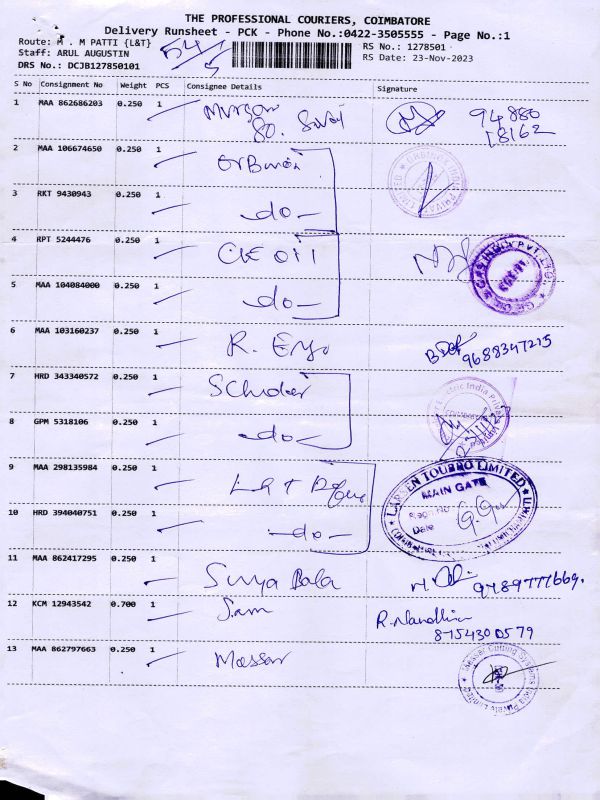 THE PROFESSIONAL COURIERS, COIMBATORE
Delivery Runsheet - PCK - Phone No.:0422-3505555 - Page No.:1
Route: M . M PATTI {L&T}
Staff: ARUL AUGUSTIN
DRS No.: DCJB127850101
54
RS No.: 1278501
RS Date: 23-Nov-2023
S No Consignment No Weight PCS Consignee Details Signature
1 MAA 862686203 0.250 1 94880
18162
2 MAA 106674650 0.250 1
3 RKT 9430943 0.250 1 -do-
4 RPT 5244476 0.250 1
5 MAA 104084000 0.250 1 -do-
6 MAA 103160237 0.250 1 R. 9688347215
7 HRD 343340572 0.250 1
8 GPM 5318106 0.250 1 -do-
9 MAA 298135984 0.250 1
LARSEN TOUBRO LIMITED
MAIN GATE
Date
10 HRD 394040751 0.250 1 -do-
11 MAA 862417295 0.250 1 Surya Bala 9489777669.
12 KCM 12943542 0.700 1 Sam R. Nandhini
8754300579
13 MAA 862797663 0.250 1 Messer
Messer Cutting Systems India Private Limited